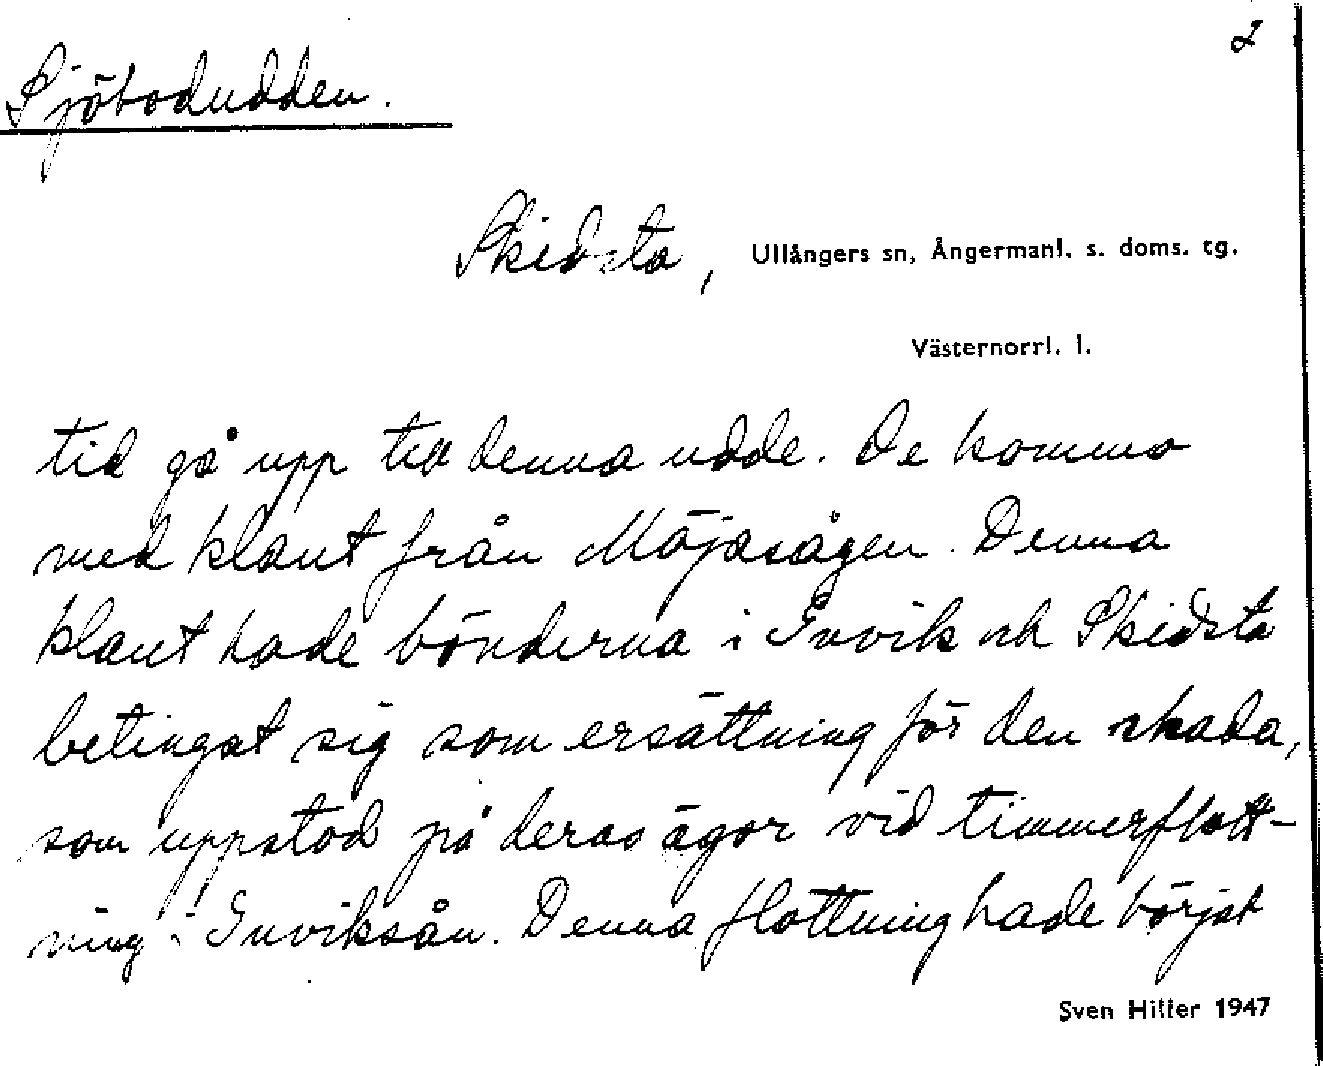 2
Sjöbodudden.
Skidsta, Ullångers sn, Ångermanl. s. doms. tg.
Västernorrl. l.
tid gå upp till denna udde. De komma
med klant från Mäjasågen. Denna
klant hade bönderna i Invik och Skidsta
betingat sig som ersättning för den skada,
som uppstod på deras ägor vid timmerflott-
ning i Inviksån. Denna flottning hade börjat
Sven Hitter 1947